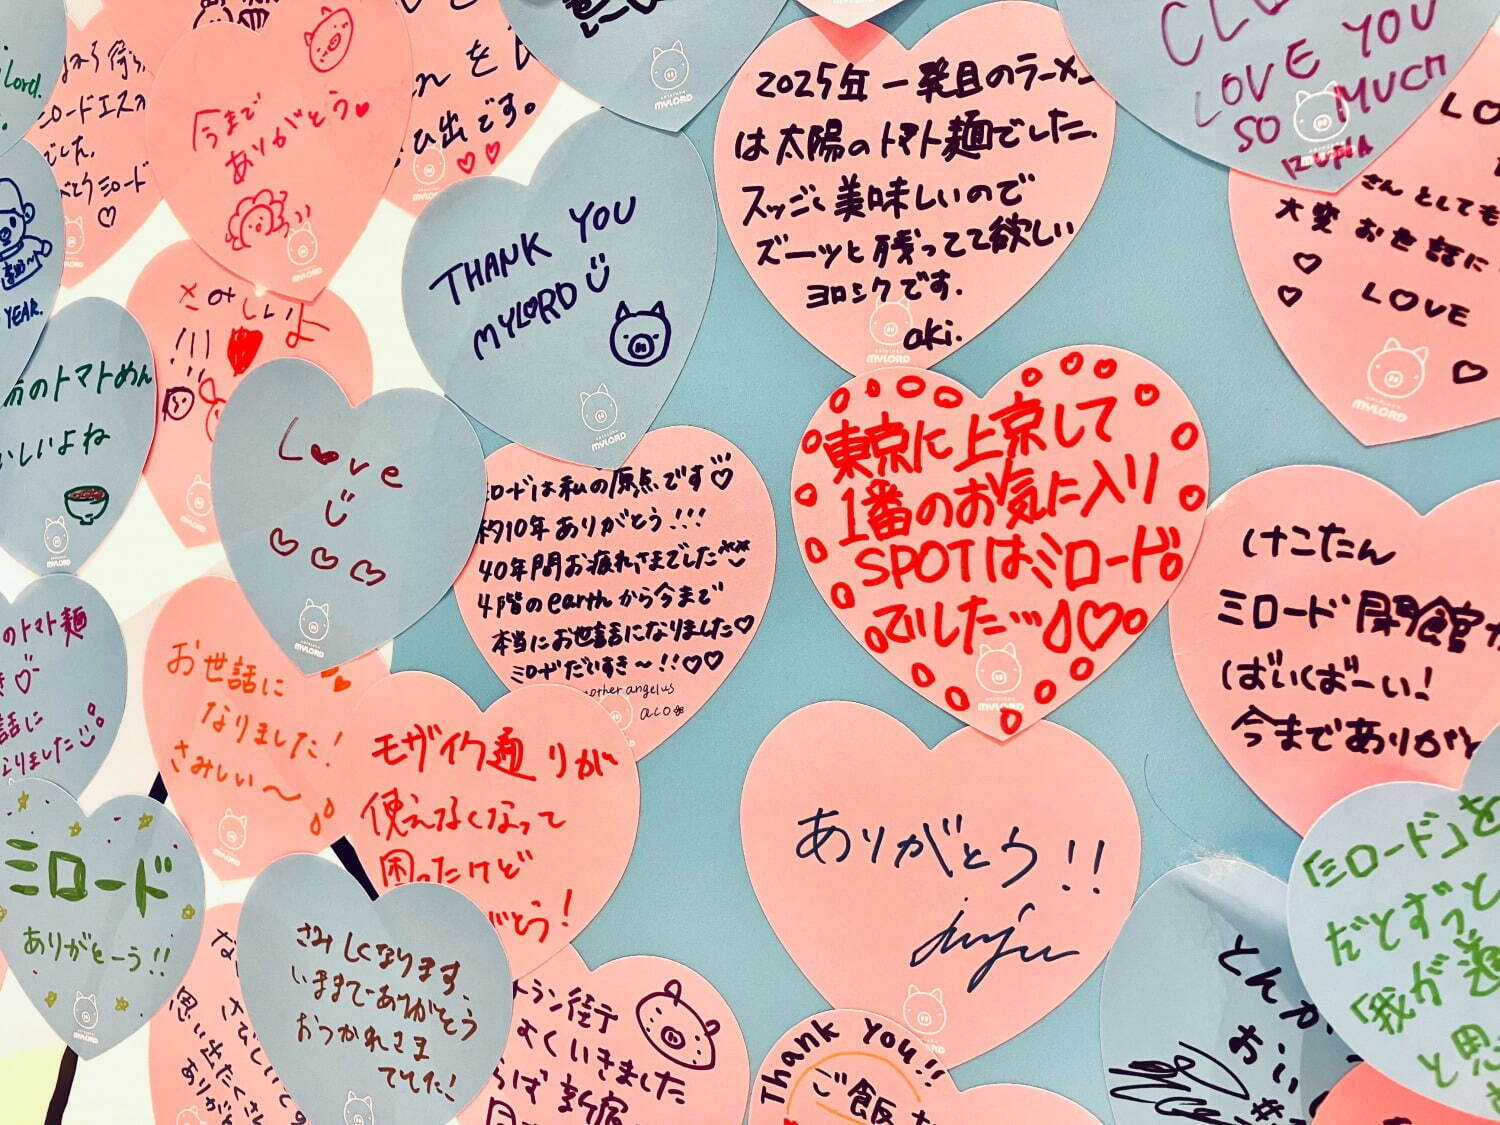 Lord.
ミロードエスカ
でした。
ミロード
今まで
ありがとう
を
ひ出です。
MYLORD
THANK YOU
MYLORD
MYLORD
2025年一発目のラーメン
は太陽のトマト麺でした。
スッごく美味しいので
ズーッと残ってて欲しい
ヨロシクです.
aki.
MYLORD
LOVE YOU
SO MUCH
さんとしても
大変お世話に
LOVE
MYLORD
YEAR.
さみしいよ
!!!
のトマトめん
いしいよね
Love
MYLORD
ミロードは私の原点です
約10年ありがとう!!!
40年間お疲れさまでした
4階のearthから今まで
本当にお世話になりました
ミロードだいすき〜!!
another angelus
aco
東京に上京して
1番のお気に入り
SPOTはミロード
でした…
MYLORD
けこたん
ミロード開館か
ばいくばーい!
今までありがと
のトマト麺
話に
なりました
お世話に
なりました!
さみしい〜
モザイク通りが
使えなくなって
困ったけど
とう!
ありがとう!!
juju
ミロード
ありがとーう!!
MYLORD
さみしくなります、
いままでありがとう
おつかれさま
でした!
思い出たくさん
トラン街
よくいきました
新宿
Thank you!!
ご飯
とんか
おい
「ミロード」を
だとずっと
「我が道
と思